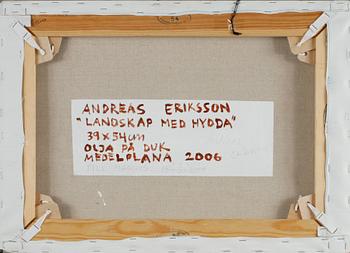 ANDREAS ERIKSSON
"LANDSKAP MED HYDDA"
39 x 54 cm
OLJA PÅ DUK
MEDELPLANA 2006